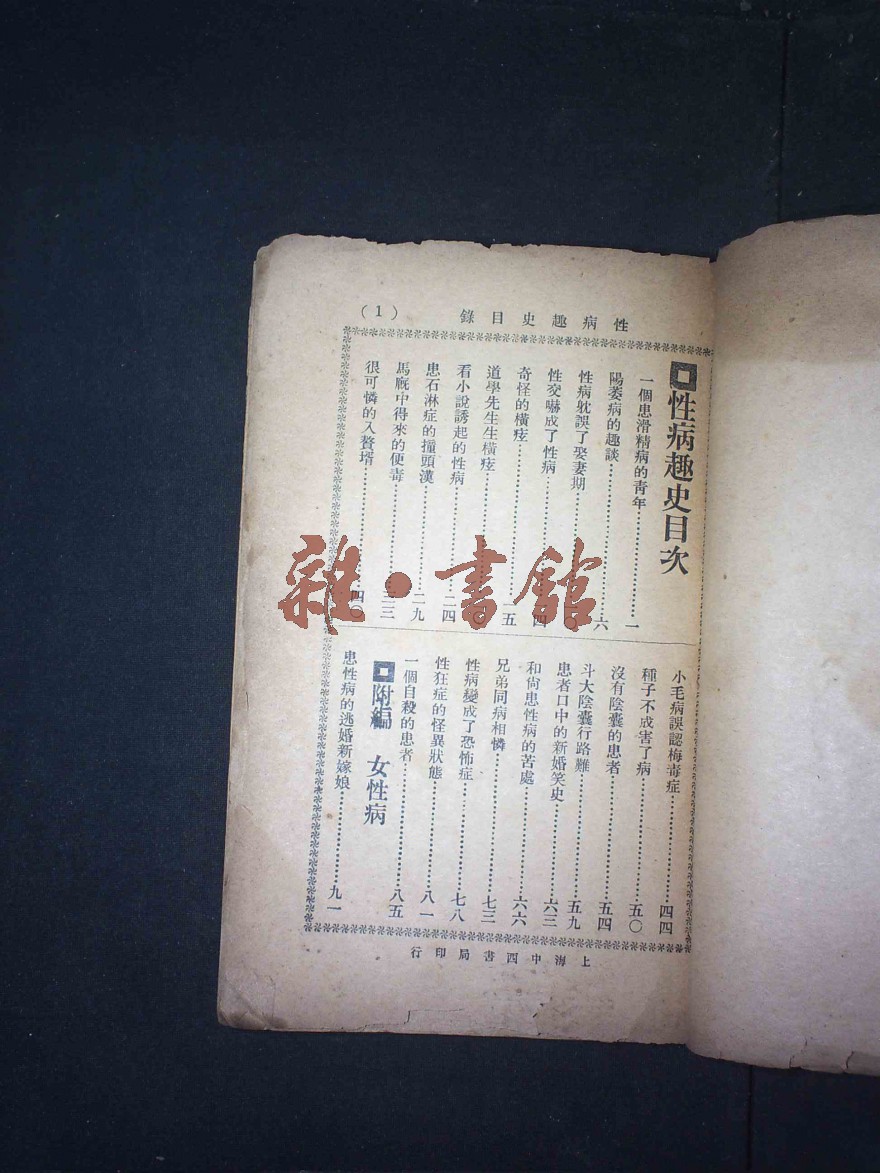 性病趣史目錄
(1)
性病趣史目次
一個患滑精病的青年…………一
陽萎病的趣談…………六
性病躭誤了娶妻期…………
性交嚇成了性病…………
奇怪的橫痃…………一五
道學先生生橫痃…………
看小說誘起的性病…………二四
患石淋症的撞頭漢…………二九
馬廐中得來的便毒…………三三
很可憐的入贅壻…………四〇
小毛病誤認梅毒症…………四四
種子不成害了病…………五〇
沒有陰囊的患者…………五四
斗大陰囊行路難…………五九
患者口中的新婚笑史…………六三
和尙患性病的苦處…………六六
兄弟同病相憐…………七三
性病變成了恐怖症…………七八
性狂症的怪異狀態…………八一
一個自殺的患者…………八五
附編 女性病
患性病的逃婚新嫁娘…………九一
上海中西書局印行
雜·書館